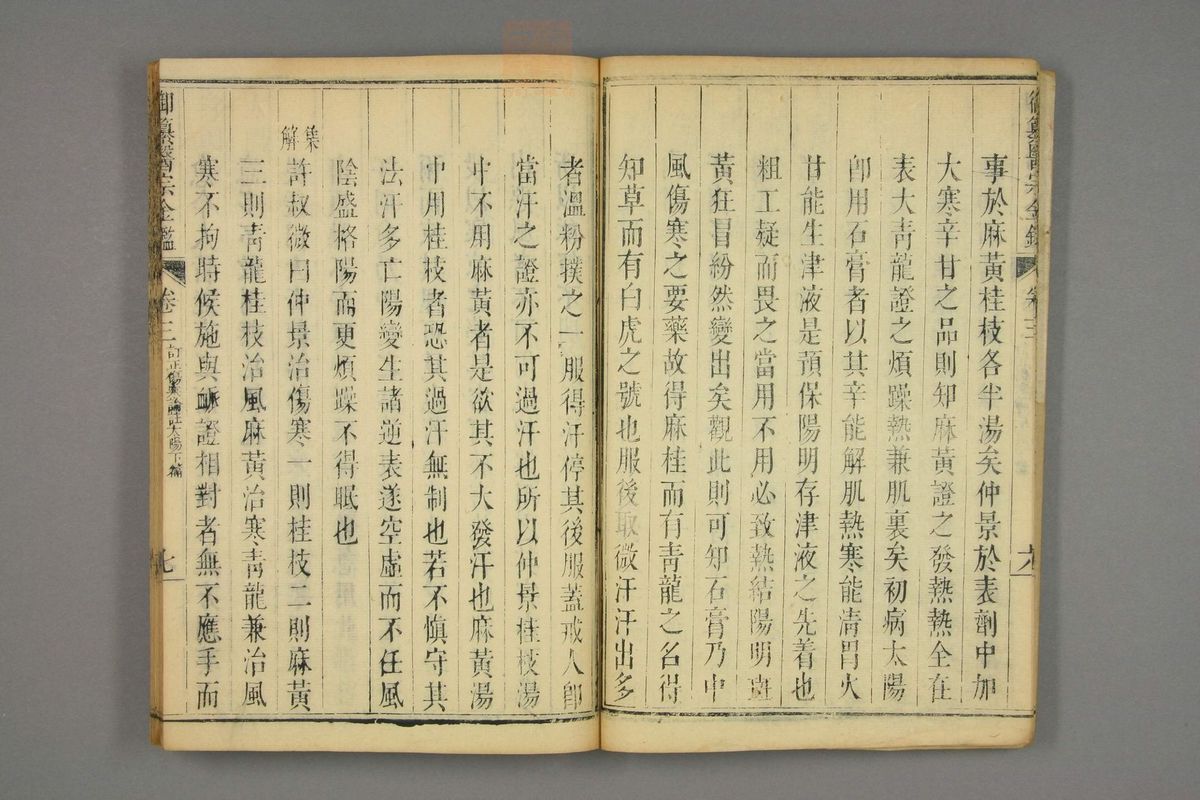 御纂醫宗金鑑 卷三
事於麻黃桂枝各半湯矣仲景於表劑中加
大寒辛甘之品則知麻黃證之發熱熱全在
表大青龍證之煩躁熱兼肌裏矣初病太陽
卽用石膏者以其辛能解肌熱寒能清胃火
甘能生津液是預保陽明存津液之先着也
粗工疑而畏之當用不用必致熱結陽明斑
黃狂冒紛然變出矣觀此則可知石膏乃中
風傷寒之要藥故得麻桂而有青龍之名得
知草而有白虎之號也服後取微汗汗出多
者溫粉撲之一服得汗停其後服蓋戒人卽
當汗之證亦不可過汗也所以仲景桂枝湯
中不用麻黃者是欲其不大發汗也麻黃湯
中用桂枝者恐其過汗無制也若不慎守其
法汗多亡陽變生諸逆表遂空虛而不任風
陰盛格陽而更煩躁不得眠也
集解
許叔微曰仲景治傷寒一則桂枝二則麻黃
三則青龍桂枝治風麻黃治寒青龍兼治風
寒不拘時候施與脈證相對者無不應手而
御纂醫宗金鑑 卷三 訂正傷寒論註太陽下篇 七